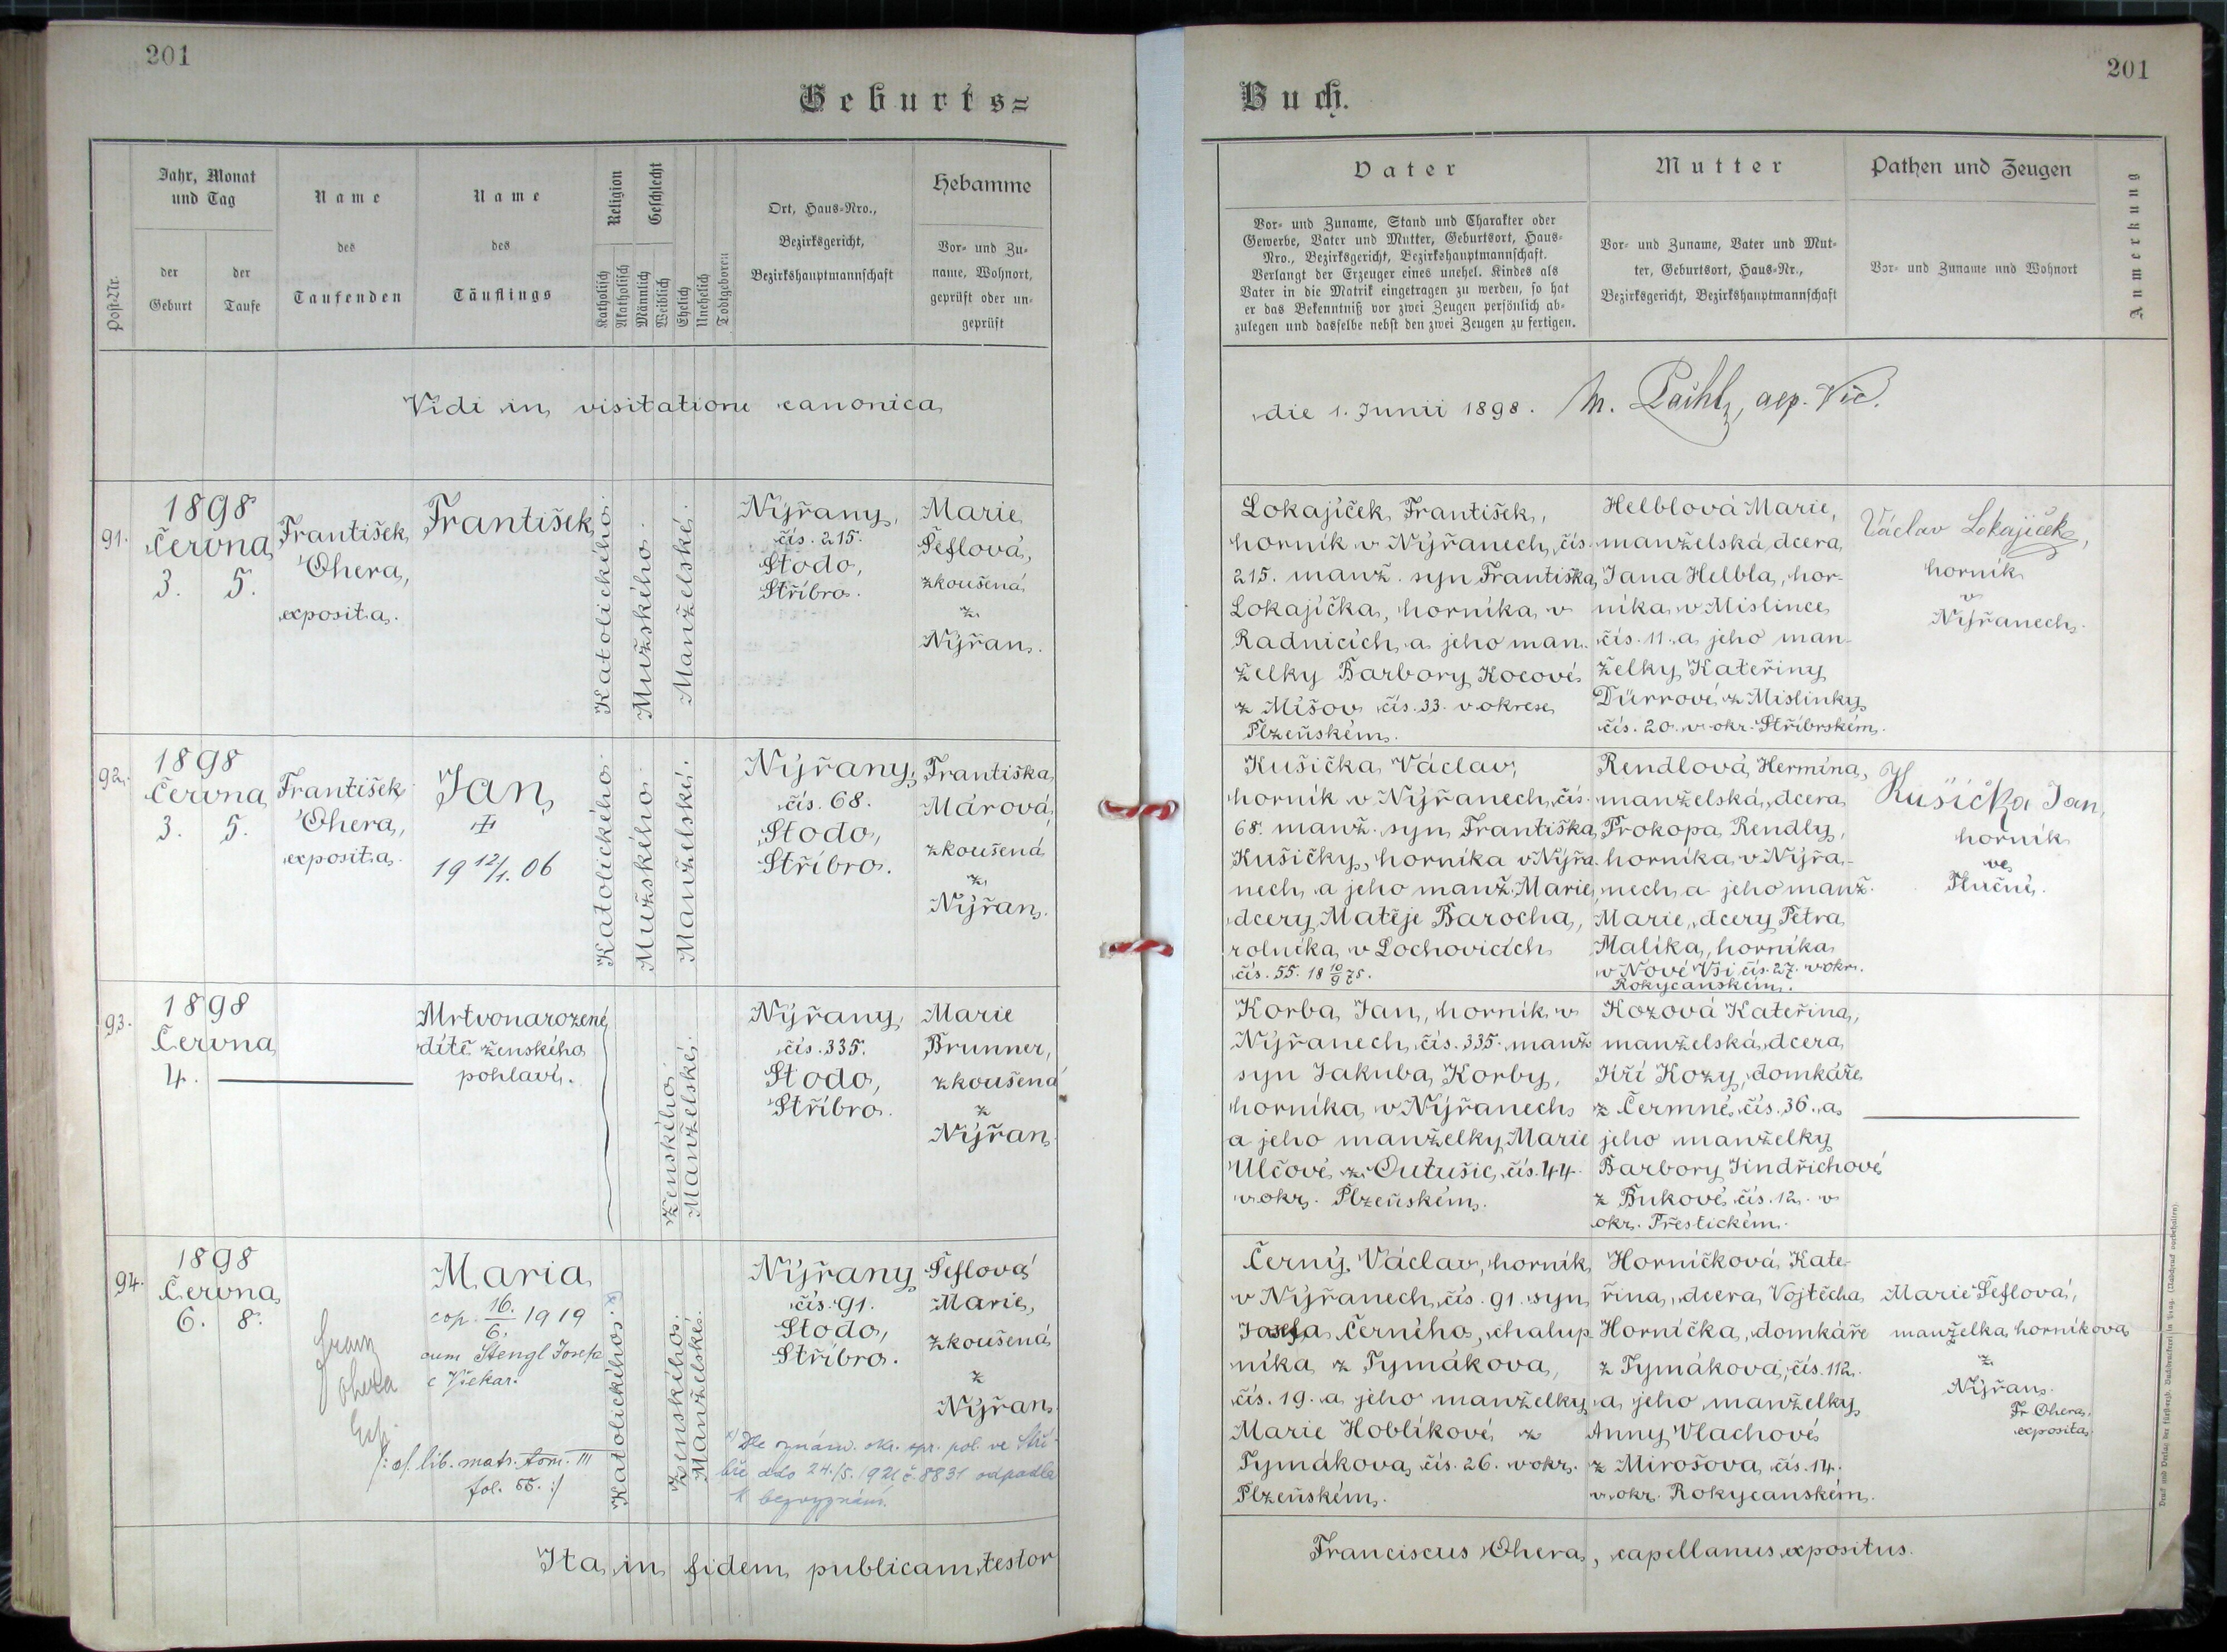 201
201
Geburts=
Buch.
Post-Nr.
Jahr, Monat
und Tag
der
Geburt
der
Taufe
Name
des
Taufenden
Name
des
Täuflings
Religion
Katholisch
Akatholisch
Geschlecht
Männlich
Weiblich
Ehelich
Unehelich
Todtgeboren
Ort, Haus-Nro.,
Bezirksgericht,
Bezirkshauptmannschaft
Hebamme
Vor- und Zu-
name, Wohnort,
geprüft oder un-
geprüft
Vater
Vor- und Zuname, Stand und Charakter oder
Gewerbe, Vater und Mutter, Geburtsort, Haus-
Nro., Bezirksgericht, Bezirkshauptmannschaft.
Verlangt der Erzeuger eines unehel. Kindes als
Vater in die Matrik eingetragen zu werden, so hat
er das Bekenntniß vor zwei Zeugen persönlich ab-
zulegen und dasselbe nebst den zwei Zeugen zu fertigen.
Mutter
Vor- und Zuname, Vater und Mut-
ter, Geburtsort, Haus-Nr.,
Bezirksgericht, Bezirkshauptmannschaft
Pathen und Zeugen
Vor- und Zuname und Wohnort
Anmerkung
Vidi in visitatione canonica
die 1. Junii 1898. M.
91.
1898
Června
3. 5.
František
Ohera,
exposita.
František
Katolického.
Mužského.
Manželské.
Nýřany,
čís. 215.
Stodo,
Stříbro.
Marie
Šeflová,
zkoušená
z
Nýřan.
Lokajíček František,
horník v Nýřanech, čís.
215. manž. syn Františka
Lokajíčka, horníka v
Radnicích a jeho man-
želky Barbory Kocové
z Mišov čís. 33. v okrese
Plzeňském.
Helblová Marie,
manželská dcera
Jana Helbla, hor-
níka v Mislince
čís. 11. a jeho man-
želky Kateřiny
Dürrové z Mislinky
čís. 20. v okr. Stříbrském.
Václav Lokajíček,
horník
v
Nýřanech.
92.
1898
Června
3. 5.
František
Ohera,
exposita.
Jan
‡
19 12/1. 06
Katolického.
Mužského.
Manželské.
Nýřany,
čís. 68.
Stodo,
Stříbro.
Františka
Márová,
zkoušená
z
Nýřan.
Kušička Václav,
horník v Nýřanech, čís.
68. manž. syn Františka
Kušičky, horníka v Nýřa-
nech a jeho manž. Marie,
dcery Matěje Barocha,
rolníka v Lochovicích
čís. 55. 18 10/9 75.
Rendlová Hermína,
manželská dcera
Prokopa Rendly,
horníka v Nýřa-
nech a jeho manž.
Marie, dcery Petra
Malíka, horníka
v Nové Vsi čís. 27. v okr.
Rokycanském.
Kušička Jan,
horník
ve
Tlučné.
93.
1898
Června
4.
Mrtvonarozené
dítě ženského
pohlaví.
Ženského.
Manželské.
Nýřany,
čís. 335.
Stodo,
Stříbro.
Marie
Brunner,
zkoušená
z
Nýřan.
Korba Jan, horník v
Nýřanech, čís. 335. manž.
syn Jakuba Korby,
horníka v Nýřanech
a jeho manželky Marie
Ulčové z Outušic, čís. 44.
v okr. Plzeňském.
Kozová Kateřina,
manželská dcera
Jiří Kozy, domkáře
z Čermné čís. 36. a
jeho manželky
Barbory Jindřichové
z Bukové čís. 12. v
okr. Přestickém.
94.
1898
Června
6. 8.
Franz
Ohera
Exp.
Maria
cop. 16./6. 1919
cum Stengl Josefa
e Všekar.
/: cf. lib. matr. tom. III
fol. 55. :/
Katolického. x)
Ženského.
Manželské.
Nýřany
čís. 91.
Stodo,
Stříbro.
Šeflová
Marie,
zkoušená
z
Nýřan.
x) Dle oznám. okr. spr. pol. ve Stří-
bře ddo 24./5. 1921 č. 8831 odpadla
k bezvyznání.
Černý Václav, horník
v Nýřanech, čís. 91. syn
Josefa Černého, chalup-
níka z Tymákova,
čís. 19. a jeho manželky
Marie Hoblíkové z
Tymákova čís. 26. v okr.
Plzeňském.
Horníčková Kate-
řina, dcera Vojtěcha
Horníčka, domkáře
z Tymákova, čís. 112.
a jeho manželky
Anny Vlachové
z Mirošova čís. 14.
v okr. Rokycanském.
Marie Šeflová,
manželka horníkova
z
Nýřan.
Fr. Ohera,
exposita
Ita in fidem publicam testor
Franciscus Ohera, capellanus expositus.